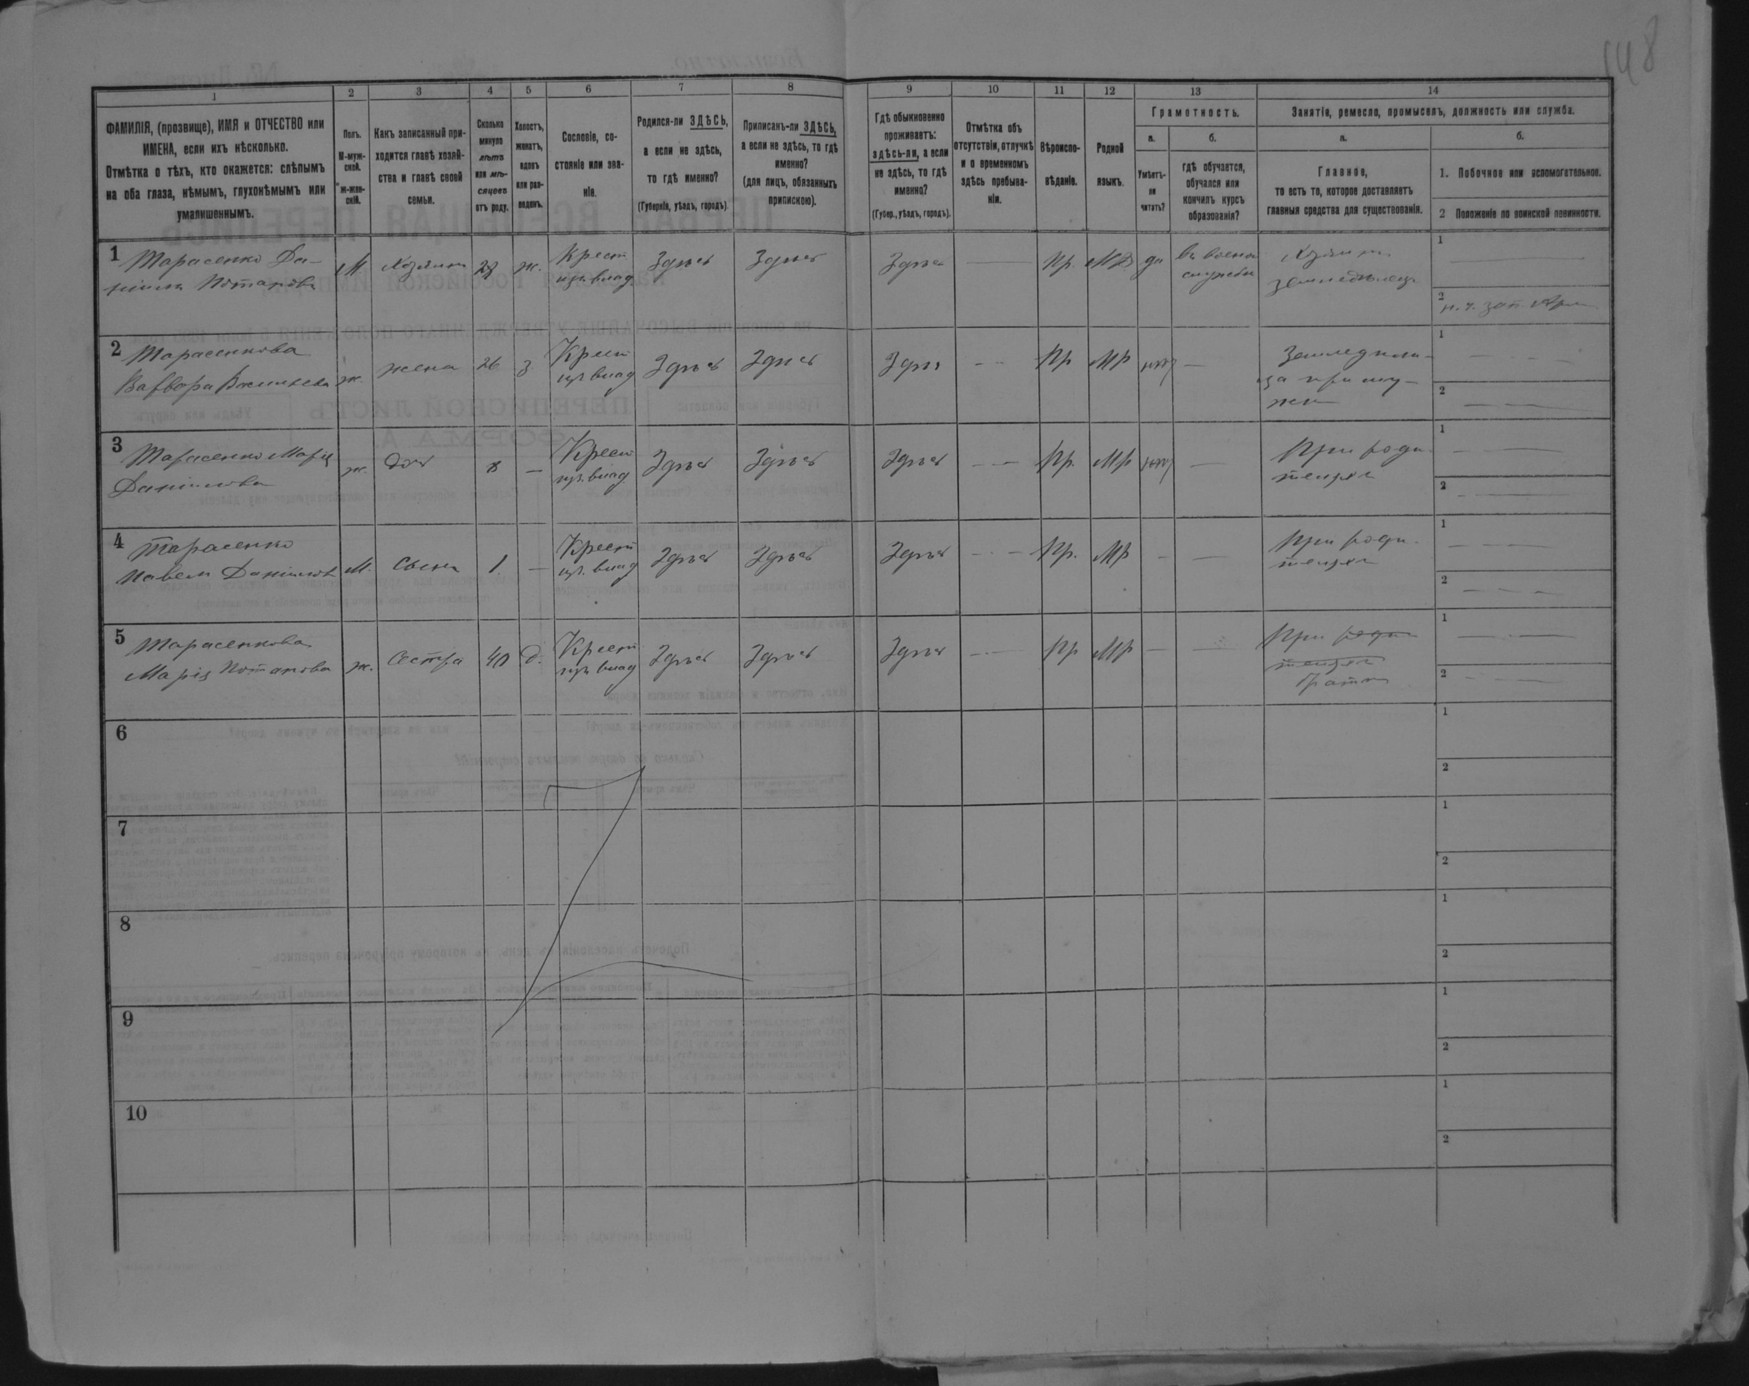 148
1 2 3 4 5 6 7 8 9 10 11 12 13 14
ФАМИЛІЯ, (прозвище), ИМЯ и ОТЧЕСТВО или
ИМЕНА, если ихъ нѣсколько.
Отмѣтка о тѣхъ, кто окажется: слѣпымъ
на оба глаза, нѣмымъ, глухонѣмымъ или
умалишеннымъ.
Полъ.
М-муж-
ской.
Ж-жен-
скій.
Какъ записанный при-
ходится главѣ хозяй-
ства и главѣ своей
семьи.
Сколько
минуло
лѣтъ
или мѣ-
сяцевъ
отъ роду.
Холостъ,
женатъ,
вдовъ
или раз-
веденъ.
Сословіе, со-
стояніе или зва-
ніе.
Родился-ли ЗДѢСЬ,
а если не здѣсь,
то гдѣ именно?
(Губернія, уѣздъ, городъ).
Приписанъ-ли ЗДѢСЬ,
а если не здѣсь, то гдѣ
именно?
(для лицъ, обязанныхъ
припискою).
Гдѣ обыкновенно
проживаетъ:
здѣсь-ли, а если
не здѣсь, то гдѣ
именно?
(Губер., уѣздъ, городъ).
Отмѣтка объ
отсутствіи, отлучкѣ
и о временномъ
здѣсь пребыва-
ніи.
Вѣроиспо-
вѣданіе.
Родной
языкъ.
Грамотность.
а.
Умѣетъ-
ли
читать?
б.
гдѣ обучается,
обучался или
кончилъ курсъ
образованія?
Занятіе, ремесло, промыселъ, должность или служба.
а.
Главное,
то есть то, которое доставляетъ
главныя средства для существованія.
б.
1. Побочное или вспомогательное.
2 Положеніе по воинской повинности.
1 Тарасенко Да-
ніилъ Потаповъ
М Хозяинъ ж. Крест
изъ влад
Здѣсь Здѣсь Здѣсь Пр. МР да въ военн
службѣ
Хозяинъ
земледѣлецъ
1
2
2 Тарасенкова
Варвара Васильева
ж. жена 26 з Крест
изъ влад
Здѣсь Здѣсь Здѣсь Пр МР нѣтъ
при му-
жѣ
1
2
3 Тарасенко Марія
Даніилова
ж. дочь 8 Крест
изъ влад
Здѣсь Здѣсь Здѣсь Пр. МР нѣтъ
При роди-
теляхъ
1
2
4 Тарасенко
Павелъ Даніиловъ
М. Сынъ 1 Крест
изъ влад
Здѣсь Здѣсь Здѣсь Пр. МР
При роди-
теляхъ
1
2
5 Тарасенкова
Марія Потапова
ж. Сестра 40 д. Крест
изъ влад
Здѣсь Здѣсь Здѣсь Пр МР
При роди-
теляхъ
братѣ
1
2
6
1
2
7
1
2
8
1
2
9
1
2
10
1
2